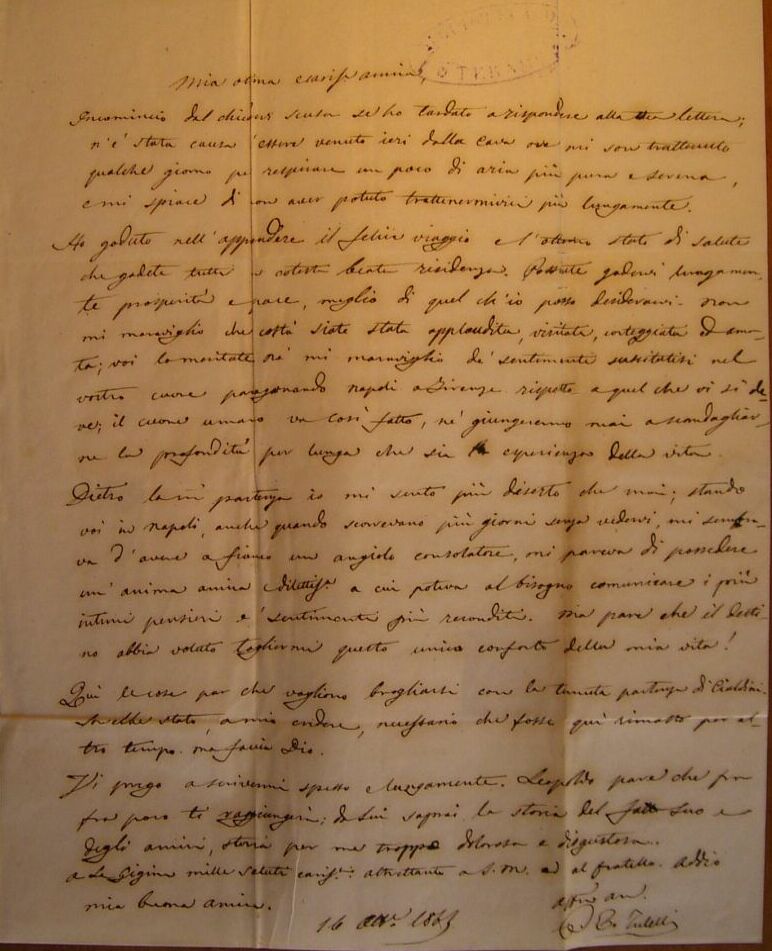 Mia ottima e cariss. amica,
Incomincio dal chiedervi scusa se ho tardato a rispondere alla tua lettera;
n'è stata causa l'essere venuto ieri dalla Cava ove mi son trattenuto
qualche giorno per respirare un poco di aria più pura e serena,
e mi spiace di non aver potuto trattenermivici più lungamente.
Ho goduto nell'apprendere il felice viaggio e l'ottimo stato di salute
che godete tutti in cotesta beata residenza. Possiate godervi lungamen-
te prosperità e pace, meglio di quel ch'io posso desiderarvi. Non
mi maraviglio che costà siate stata applaudita, visitata, corteggiata ed ama-
ta; voi lo meritate nè mi maraviglio de' sentimenti suscitatisi nel
vostro cuore paragonando Napoli a Firenze rispetto a quel che vi si de-
ve; il cuore umano va così fatto, nè giungeremo mai a scandagliar-
ne la profondità per lunga che sia la esperienza della vita.
Dietro la partenza io mi sento più diserto che mai; stando
voi in Napoli, anche quando scorrevano più giorni senza vedervi, mi sembra-
va d'avere a fianco un angiolo consolatore, mi pareva di possedere
un'anima amica e dilettiss.a a cui poteva al bisogno comunicare i più
intimi pensieri e i sentimenti più reconditi. Ma pare che il desti-
no abbia voluto togliermi questo unico conforto della mia vita!
Quì le cose par che vogliono brogliarsi con la temuta partenza di Cialdini.
Sarebbe stato, a mio credere, necessario che fosse quì rimasto per al-
tro tempo. ma faccia Dio.
Vi prego a scrivermi spesso e lungamente. Leopoldo pare che fra
fra poco ti raggiungerà; da lui saprai la storia del fatto suo e
degli amici, storia per me troppo dolorosa e disgustosa.
a La Gigina mille saluti cariss.: altrettante a S. M. ed al fratello. addio
mia buona amica.
aff.mo am.
16 8186